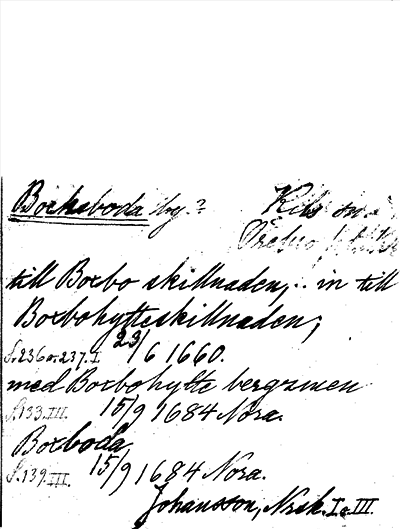 Boxboda by? Kils sn.
Örebro
till Boxbo skillnaden, .. in till
Boxbohytteskillnaden,
S. 236 o. 237. I. 23/6 1660.
med Boxbohytte bergzmen
S. 133. III. 15/9 1684 Nora.
Boxboda,
S. 139. III. 15/9 1684 Nora.
Johansson, Nrsk. I o III.